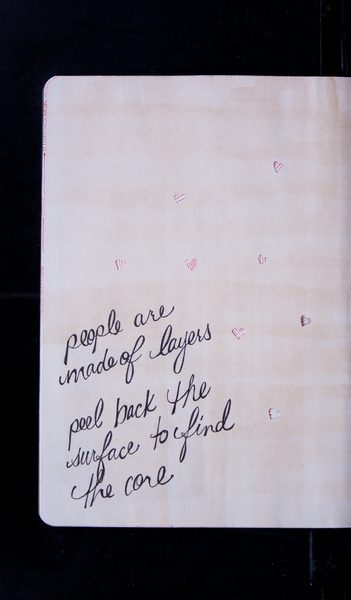 people are
made of layers
peel back the
surface to find
the core